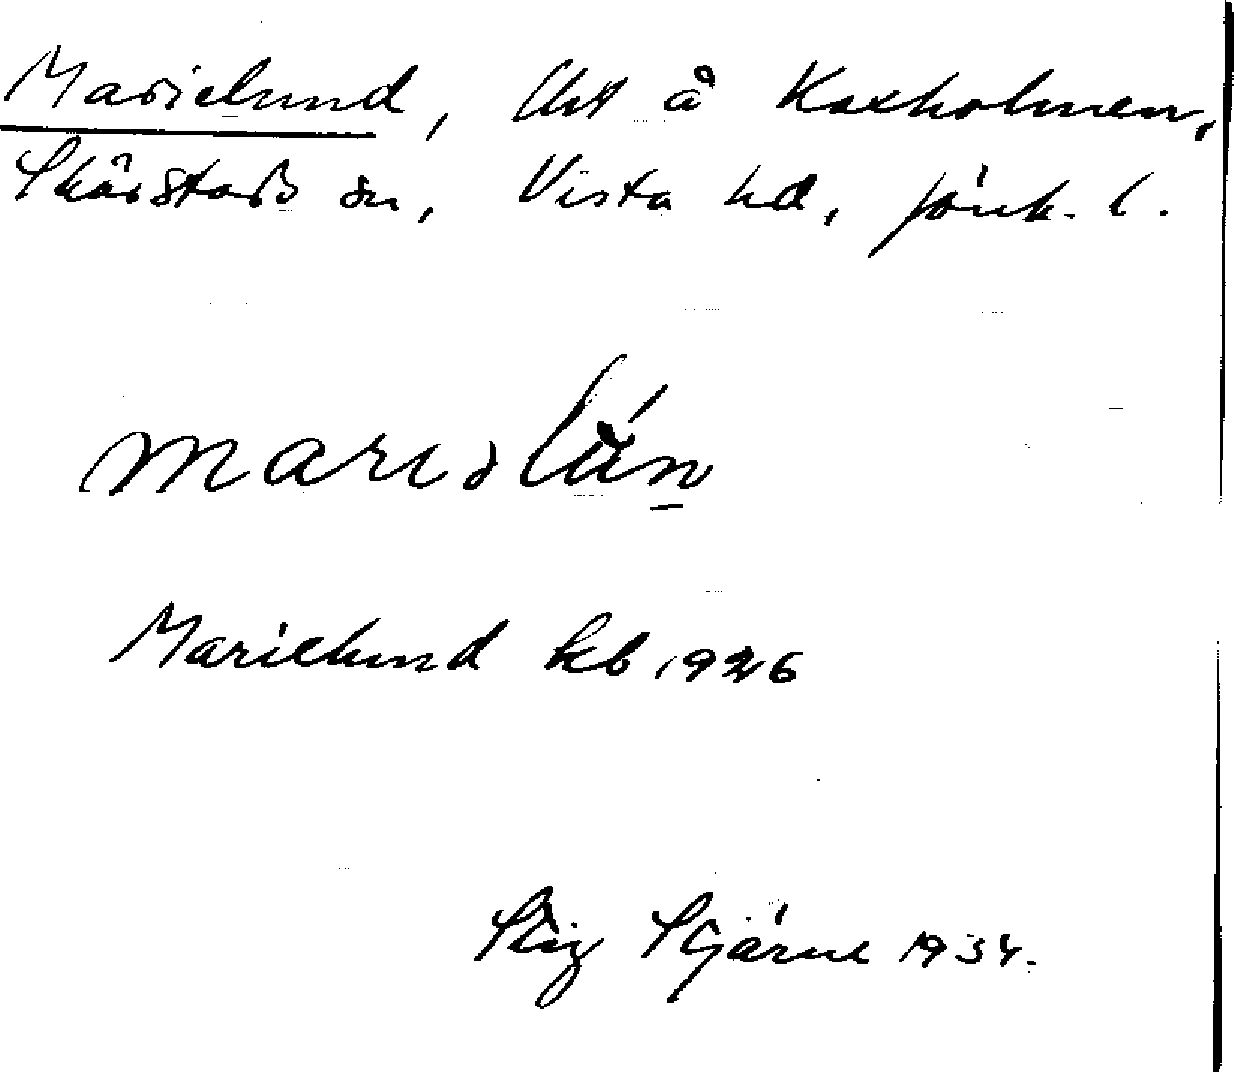 Marielund, Ust å Kaxholmen,
Skärstads sn, Vista hd, Jönk. l.
Marielund kb 1926
Stig Stjärne 1934.